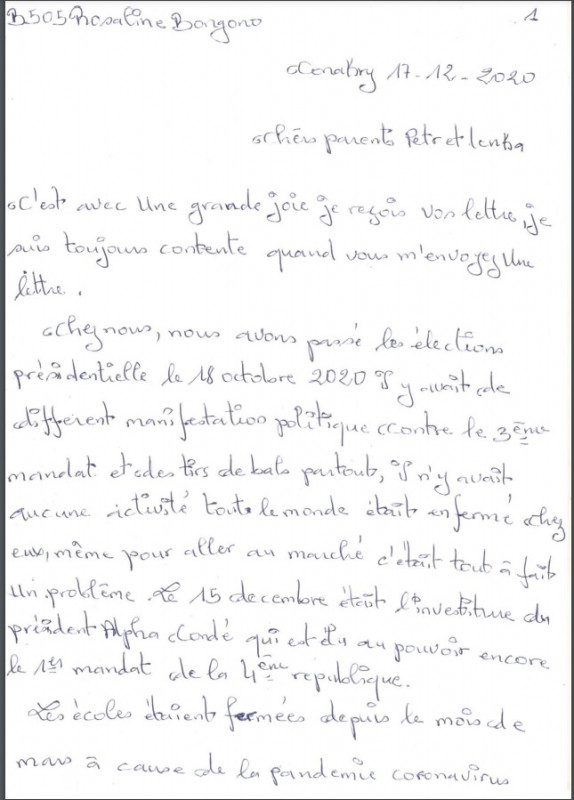 B505 Rosaline Bongono 1
Conakry 17-12-2020
Chérs parents Petr et lenka
C'est avec Une grande joie je reçois vos lettre, je
suis toujours contente quand vous m'envoyez Une
lettre.
Chez nous, nous avons passé les élections
présidentielle le 18 octobre 2020 Il y avait de
différent manifestation politique contre le 3ème
mandat et des tirs de bals partout, Il n'y avait
aucune activité toute le monde était enfermé chez
eux, même pour aller au marché c'était tout à fait
Un problème. Le 15 decembre était l'investiture du
président Alpha Condé qui est élu au pouvoir encore
le 1er mandat de la 4ème republique.
Les écoles étaient fermées depuis le mois de
mars à cause de la pandemie coronavirus